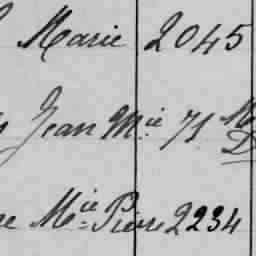 Marie 2045
Jean M.ie 71
M.ie Pierre 2234